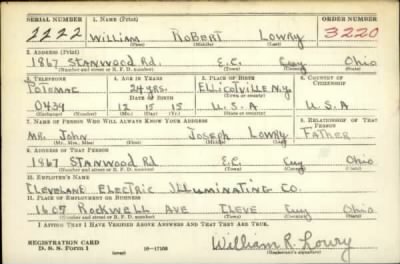 SERIAL NUMBER 1. NAME (Print) ORDER NUMBER
2222 William Robert Lowry 3220
(First) (Middle) (Last)
2. ADDRESS (Print)
1867 STANWOOD Rd. E.C. Cuy Ohio
(Number and street or R. F. D. number) (Town) (County) (State)
3. TELEPHONE 4. AGE IN YEARS 5. PLACE OF BIRTH 6. COUNTRY OF CITIZENSHIP
Potomac 24 yrs. Ellicottville N.Y.
DATE OF BIRTH (Town or county)
0434 12 15 15 U.S.A U.S.A
(Exchange) (Mo.) (Day) (Yr.) (State or country)
7. NAME OF PERSON WHO WILL ALWAYS KNOW YOUR ADDRESS 8. RELATIONSHIP OF THAT PERSON
Mr. John Joseph Lowry Father
(Mr., Mrs., Miss) (First) (Middle) (Last)
9. ADDRESS OF THAT PERSON
1867 STANWOOD Rd E.C. Cuy Ohio
(Number and street or R. F. D. number) (Town) (County) (State)
10. EMPLOYER'S NAME
Cleveland Electric Illuminating Co.
11. PLACE OF EMPLOYMENT OR BUSINESS
1607 Rockwell Ave Cleve Cuy Ohio
(Number and street or R. F. D. number) (Town) (County) (State)
I AFFIRM THAT I HAVE VERIFIED ABOVE ANSWERS AND THAT THEY ARE TRUE.
REGISTRATION CARD
D. S. S. Form 1 (over) 16—17105 William R. Lowry
(Registrant's signature)